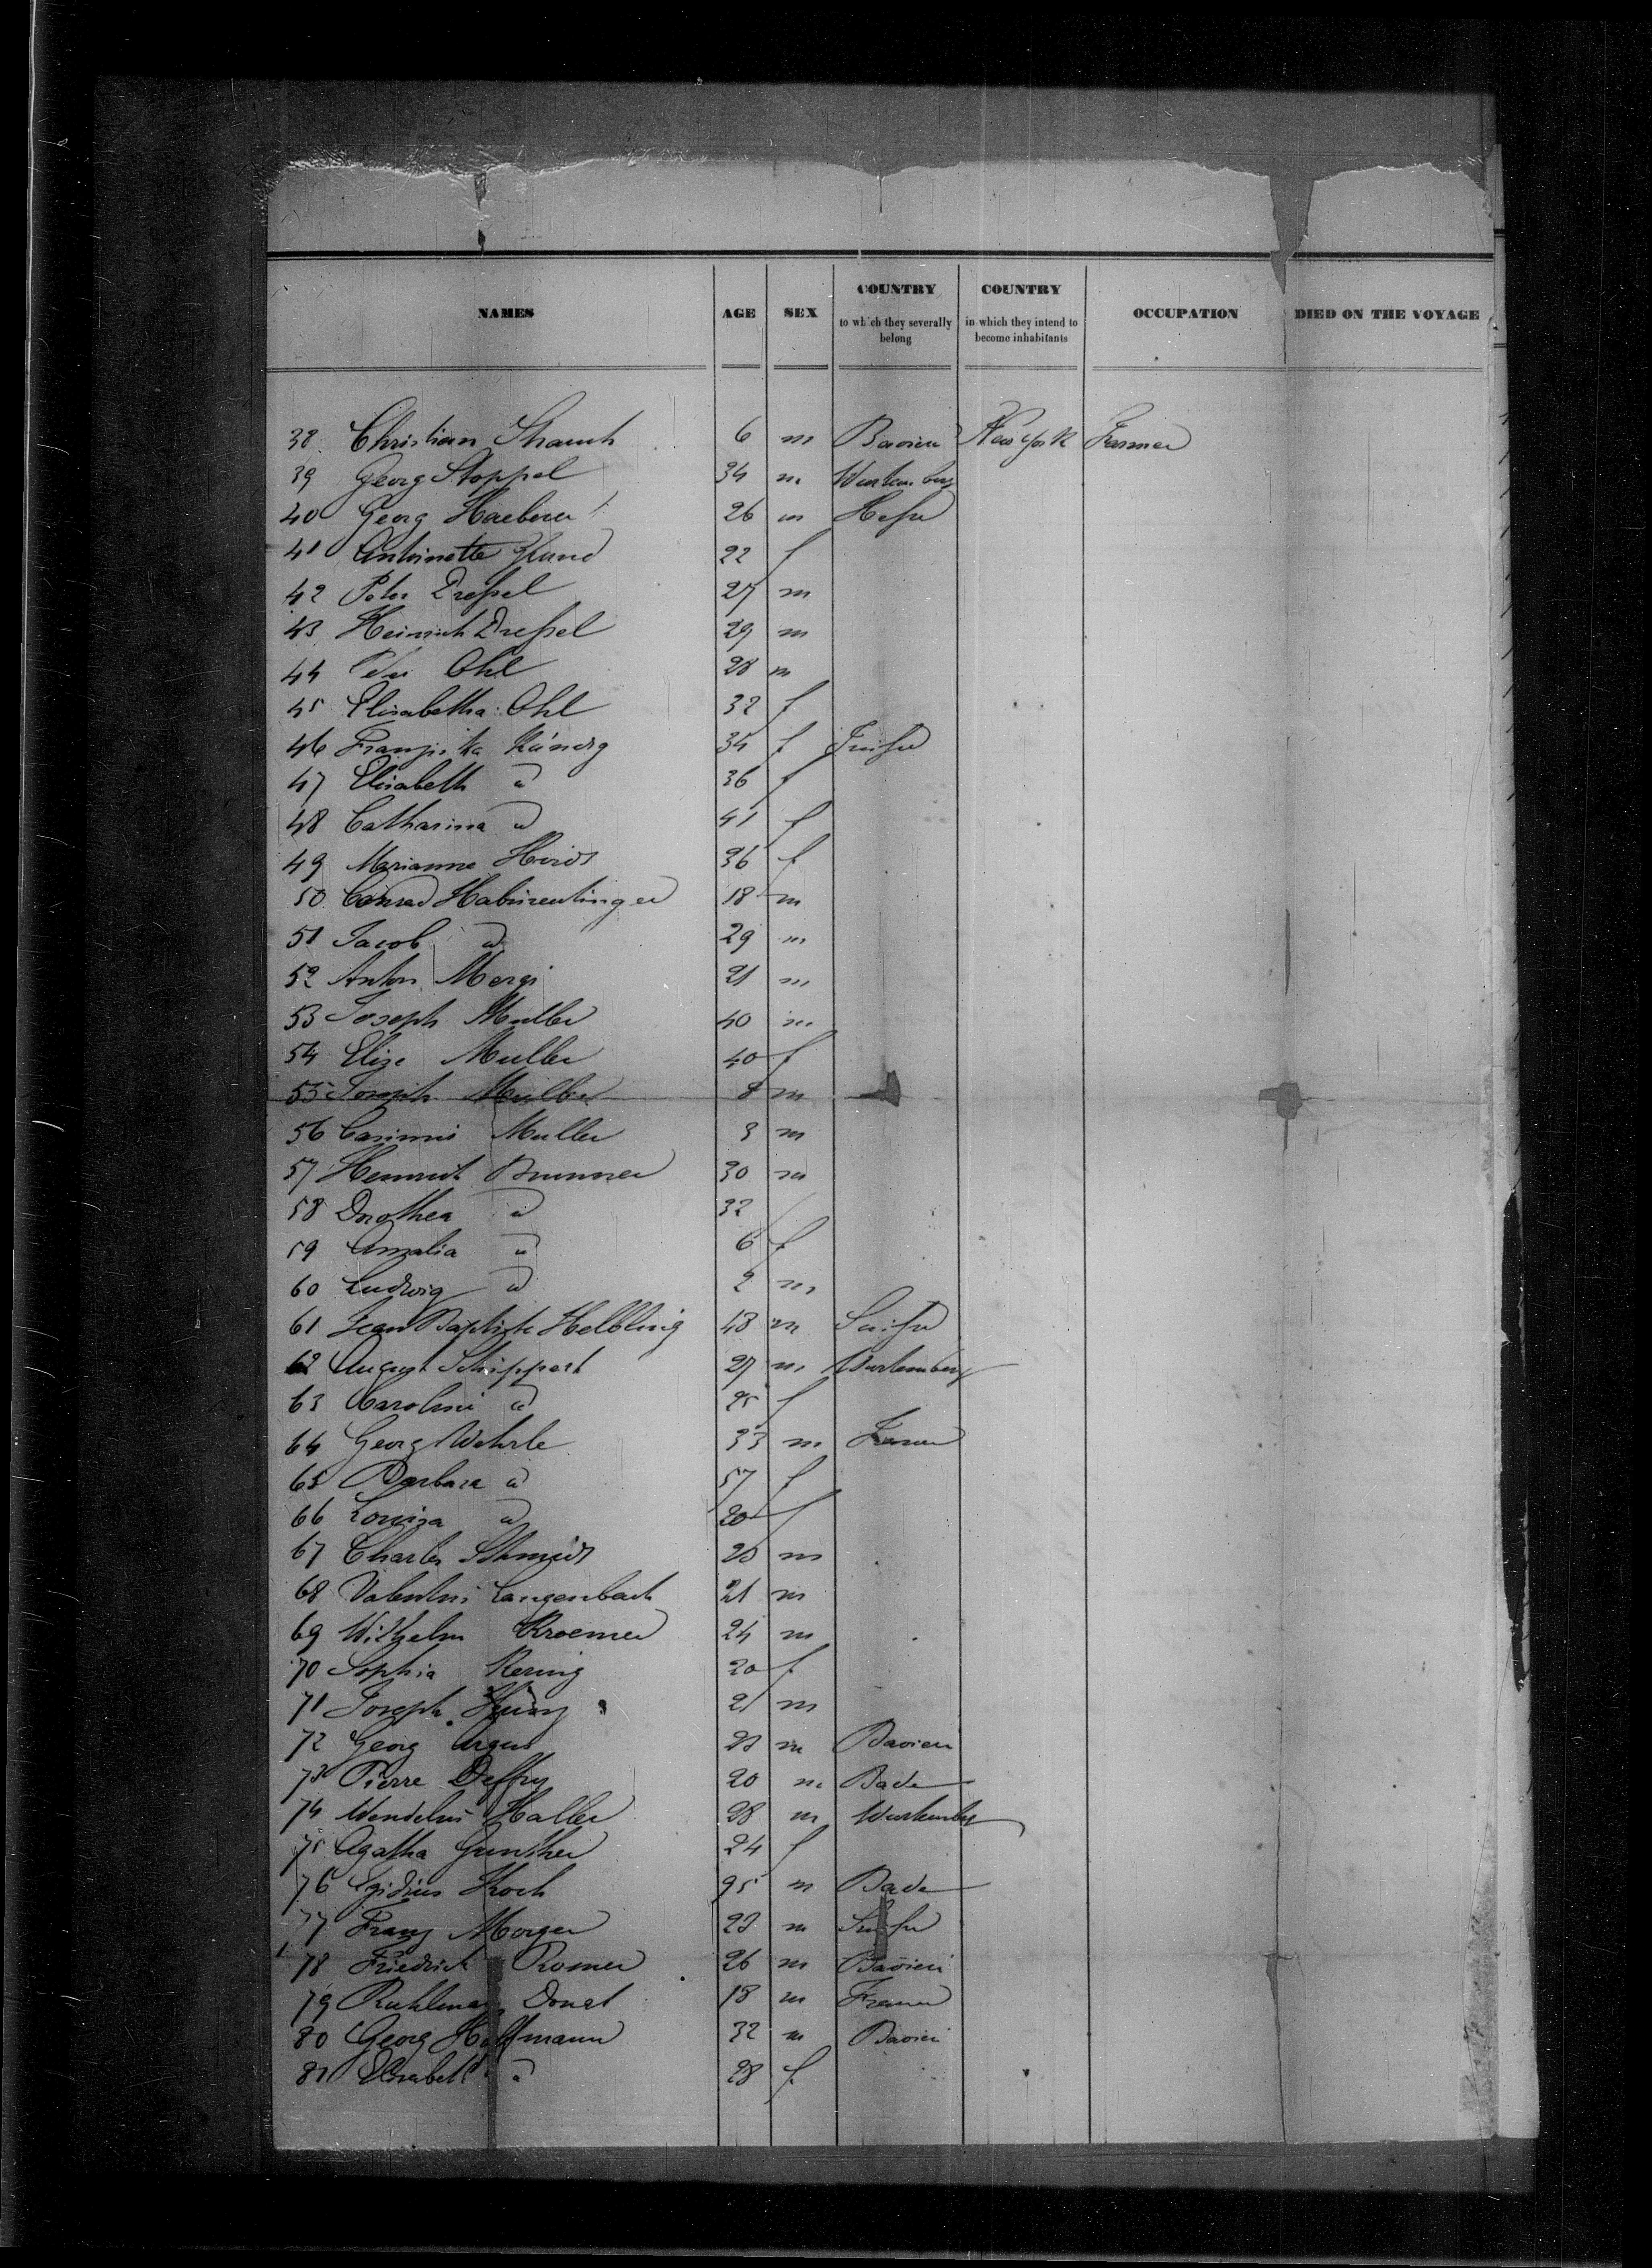 NAMES AGE SEX COUNTRY to which they severally belong COUNTRY in which they intend to become inhabitants OCCUPATION DIED ON THE VOYAGE
38 Christian 6 m Baviere New York Farmer
39 Georg Stoppel 34 m Wurtemberg
40 Georg Haeberer 26 m Hesse
41 Antoinette 22 f
42 Peter Dressel 27 m
43 Heinrich Dressel 29 m
44 Peter Ohl 28 m
45 Elisabetha Ohl 32 f
46 Franziska Kündig 34 f
47 Elisabeth d 36 f
48 Catharina d 41 f
49 Marianne 36 f
50 Conrad 18 m
51 Jacob d 29 m
52 Anton 21 m
53 Joseph Muller 40 m
54 Elise Muller 40 f
55 Joseph Muller 8 m
56 Muller 3 m
57 Heinrich Brunner 30 m
58 Dorothea d 32
59 Amalia d 6 f
60 Ludwig d 2 m
61 Jean Baptiste Helbling 43 m Suisse
62 August Schippert 27 m Wurtemberg
63 Caroline d 25 f
64 Georg Wehrle 33 m
65 Barbara d 57 f
66 Louisa d 20 f
67 Charles Schmidt m
68 Valentin Langenbach 21 m
69 Wilhelm Kroemer 24 m
70 Sophia Kering 20 f
71 Joseph 21 m
72 Georg Argus m Baviere
73 Pierre 20 m Bade
74 Wendelin Haller 28 m Wurtemberg
75 Agatha Gunther 24 f
76 Egidius Koch m Bade
77 Franz Morger m Suisse
78 Friedrich Romer 26 m Baviere
79 Donat 18 m France
80 Georg Hoffmann 32 m Baviere
81 Elisabeth d 28 f